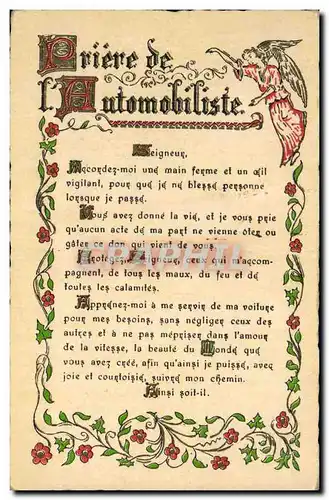 Prière de
l'Automobiliste
Seigneur,
Accordez-moi une main ferme et un œil
vigilant, pour que je ne blesse personne
lorsque je passe.
Vous avez donné la vie, et je vous prie
qu'aucun acte de ma part ne vienne ôter ou
gâter ce don qui vient de vous.
Protégez, Seigneur, ceux qui m'accom-
pagnent, de tous les maux, du feu et de
toutes les calamités.
Apprenez-moi à me servir de ma voiture
pour mes besoins, sans négliger ceux des
autres et à ne pas mépriser dans l'amour
de la vitesse, la beauté du Monde que
vous avez créé, afin qu'ainsi je puisse, avec
joie et courtoisie, suivre mon chemin.
Ainsi soit-il.